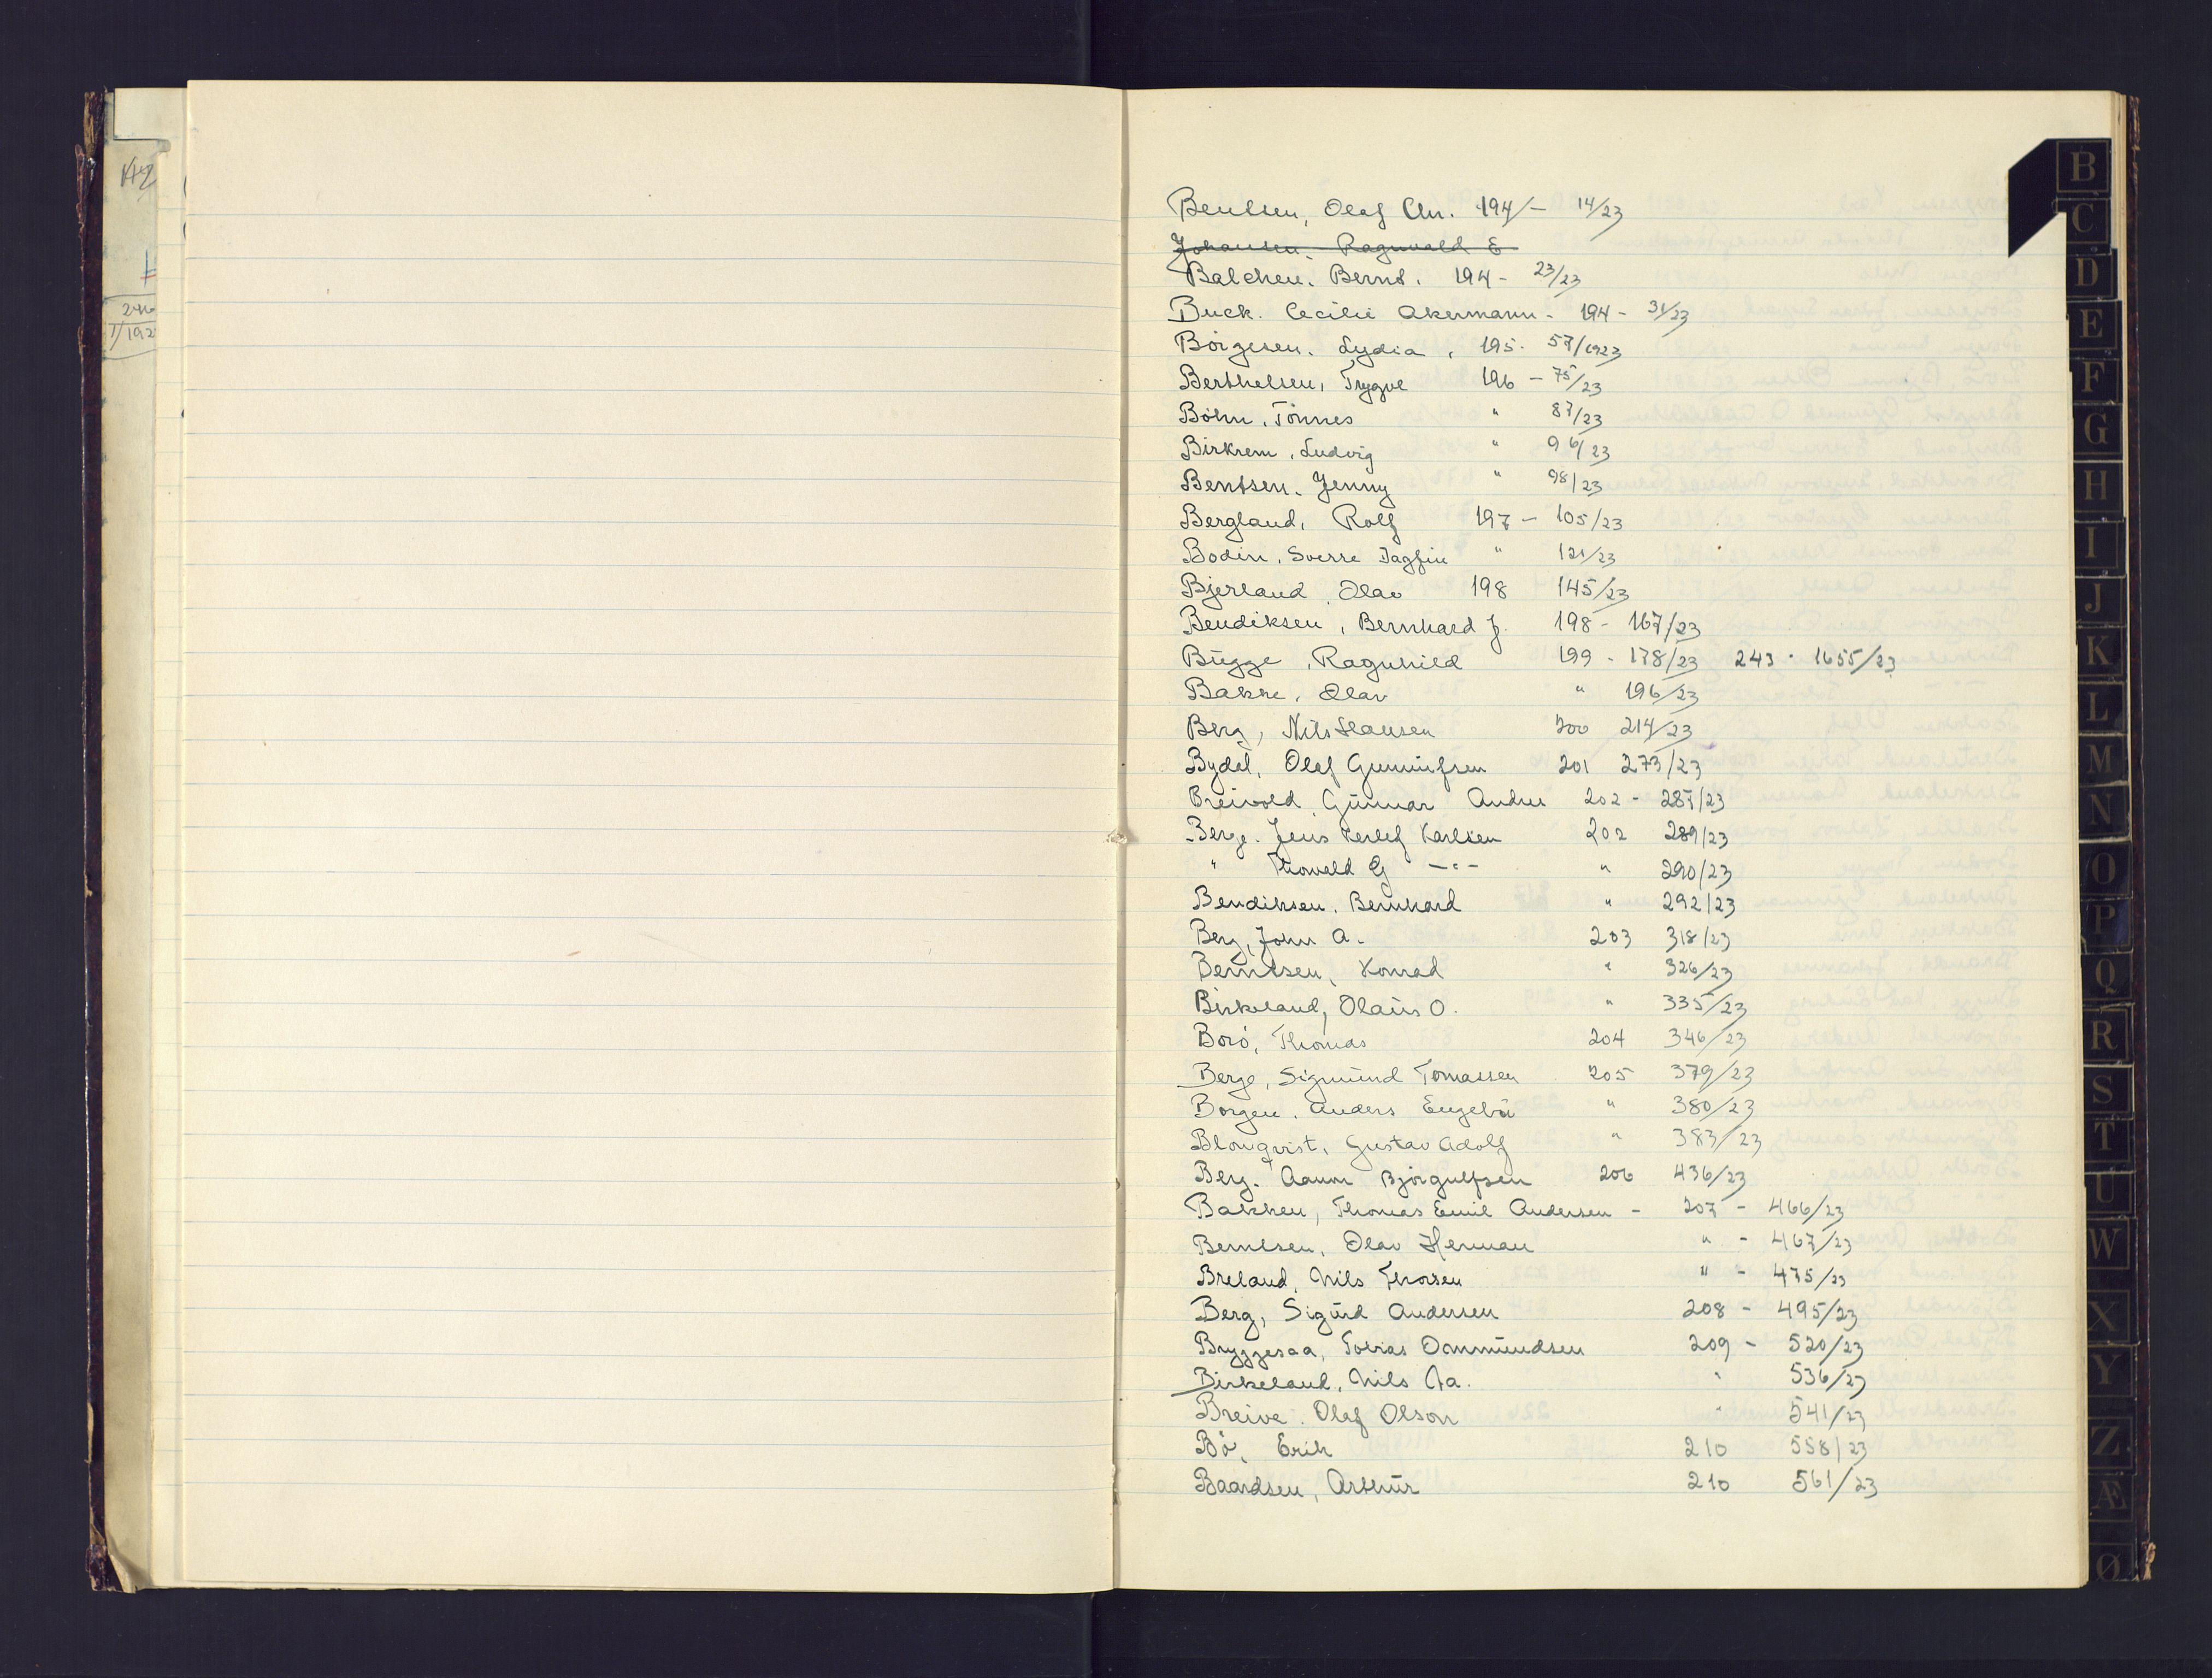 Bentsen, Olaf Chr. 194/- 14/23
Johansen. Ragnvald E
Balchen. Bernt. 194- 23/23
Buck. Cecilie Akermann - 194 - 31/23
Börgesen. Lydia, 195. 57/1923
Berthelsen, Trygve 196 - 75/23
Böhn, Tönnes " 87/23
Birkrem, Ludvig " 96/23
Bentsen. Jenny " 98/23
Bergland, Rolf 197 - 105/23
Bodin, Sverre Dagfin " 121/23
Bjerland, Olav 198 145/23
Bendiksen, Bernhard J. 198 - 167/23
Bugge, Ragnhild 199 - 178/23 243 - 1655/23
Bakke, Olav " 196/23
Berg, Nils Hansen 200 214/23
Bydal, Olaf Gunnufsen 201 273/23
Breivold, Gunnar Andre 202 - 287/23
Berge. Jens Terlef Karlsen 202 289/23
" Thorvald G -"- " 290/23
Bendiksen, Bernhard " 292/23
Berg, John A. 203 318/23
Berntsen, Konrad " 326/23
Birkeland, Olaus O. " 335/23
Borö, Thomas 204 346/23
Berge, Sigmund Tomassen 205 379/23
Borgen, Anders Engebu " 380/23
Blomqvist, Gustav Adolf " 383/23
Berg. Aanon Björgulfsen 206 436/23
Bakken, Thomas Emil Andersen - 207 - 466/23
Berntsen, Olav Herman " - 467/23
Breland, Nils Thorsen " - 475/23
Berg, Sigurd Andersen 208 - 495/23
Bryggesaa, Tobias Ommundsen 209 - 520/23
Birkeland, Nils Aa. " 536/23
Breive. Olaf Olson " 541/23
Bö, Erik 210 558/23
Baardsen, Arthur 210 561/23
B
C
D
E
F
G
H
I
J
K
L
M
N
O
P
Q
R
S
T
U
W
X
Y
Z
Æ
Ø